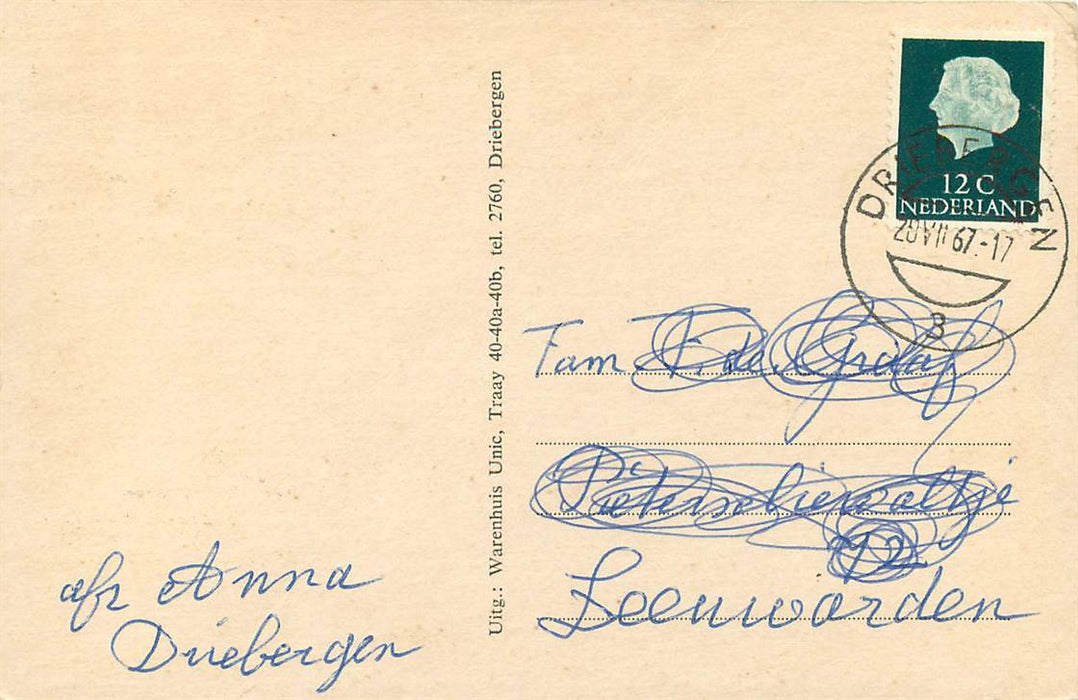 12 C
NEDERLAND
DRIEBERGEN
20 VII 67.-17
3
Uitg.: Warenhuis Unic, Traay 40-40a-40b, tel. 2760, Driebergen
Fam
Leeuwarden
afz Anna
Driebergen